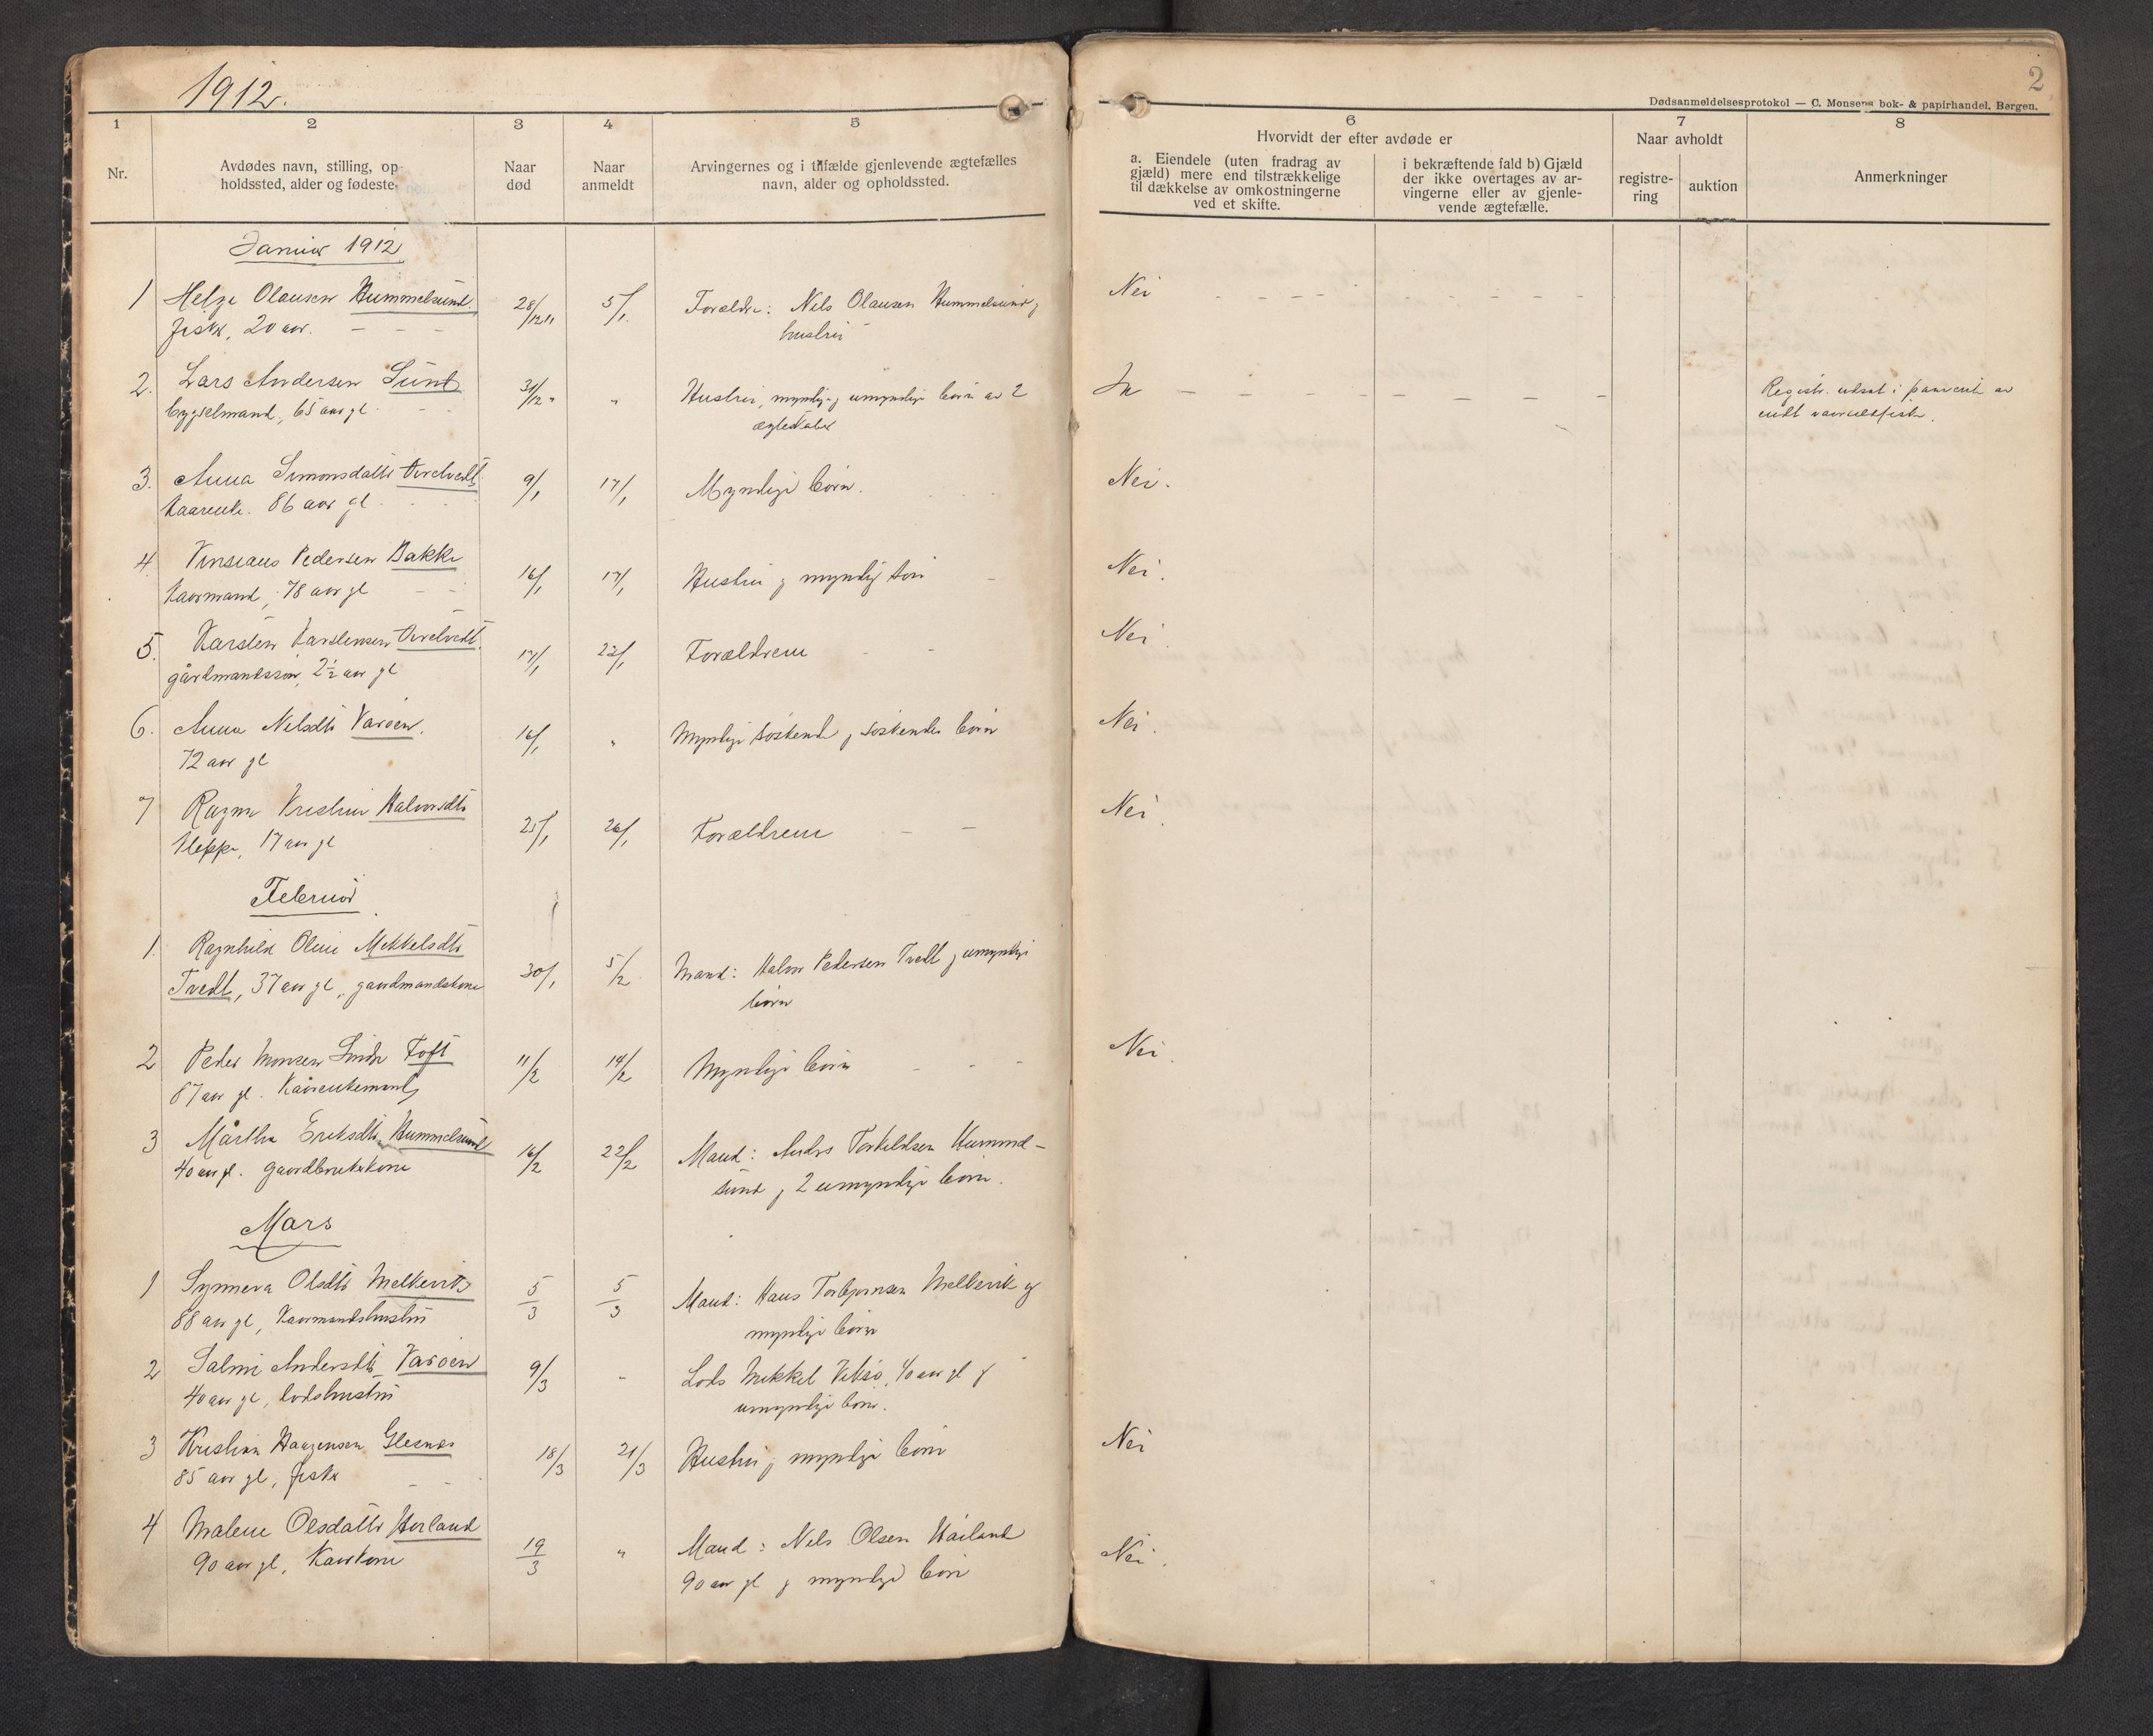 1912.
2
Dødsanmeldelsesprotokol — C. Monsens bok- & papirhandel, Bergen.
1
2
3
4
5
6
7
8
Nr.
Avdødes navn, stilling, op-
holdssted, alder og fødeste-
Naar
død
Naar
anmeldt
Arvingernes og i tilfælde gjenlevende ægtefælles
navn, alder og opholdssted.
Hvorvidt der efter avdøde er
a. Eiendele (uten fradrag av
gjæld) mere end tilstrækkelige
til dækkelse av omkostningerne
ved et skifte.
i bekræftende fald b) Gjæld
der ikke overtages av ar-
vingerne eller av gjenle-
vende ægtefælle.
Naar avholdt
registre-
ring
auktion
Anmerkninger
Januar 1912
1 Helge Olausen Hummelsund 28/12 11 5/1. Forældre: Nels Olausen Hummelsund og Nei
fisker, 20 aar. hustru
2. Lars Andersen Sund 31/12 " " Hustru, myndig og umyndige børn av 2 Ja Registr. utsat i paavente av
bygselmand, 65 aar gl. ægteskaber
3. Anna Simonsdatter 9/1 17/1 Myndige børn. Nei.
86 aar gl.
4 Pedersen Bakke 16/1 17/1 Hustru og myndig søn Nei.
kaarmand, 78 aar gl
5. Karsten Karstensen 17/1 22/1 Forældrene Nei.
gårdmandssøn, 2½ aar gl
6. Anna Nelsdtr Varøen. 16/1 " Myndige søskende og søskendes børn Nei.
72 aar gl
7 Ragna Kristine Halvorsdtr 25/1 26/1 Forældrene Nei.
Kleppe, 17 aar gl
Februar
1. Ragnhild Oline Mikkelsdtr 30/1 5/2 Mand: Halvor Pedersen Tvedt og umyndige
Tvedt, 37 aar gl, gaardmandskone børn
2 Peder Monsen Toft 11/2 14/2 Myndige børn Nei.
87 aar gl.
3 Mårtha Eriksdtr Hummelsund 16/2 22/2 Mand: Anders Torkildsen Hummel-
40 aar gl. gaardbrukerkone sund og 2 umyndige børn.
Mars
1 Synneva Olsdtr Melkevik 5/3 5/3 Mand: Hans Torbjørnsen Melkevik og
88 aar gl, kaarmandshustru myndige børn
2 Salmi Andersdtr Varøen 9/3 " Lods Mikkel 40 aar gl og
40 aar gl, lodshustru umyndige børn.
3 Kristian Haagensen Glesnæs 18/3 21/3 Hustru og myndige børn Nei
85 aar gl, fisker
4 Malene Olsdatter 19/3 " Mand: Nels Olsen Nei.
90 aar gl, Kaarkone 90 aar gl og myndige børn